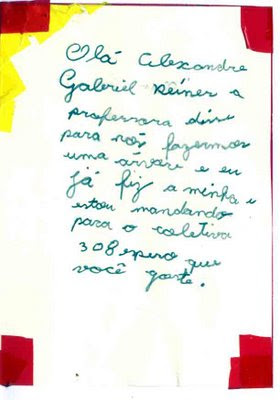 Olá Alexandre
Gabriel Reiner a
professora disse
para nós fazermos
uma árvore e eu
já fiz a minha e
estou mandando
para o coletivo
308 espero que
você goste.